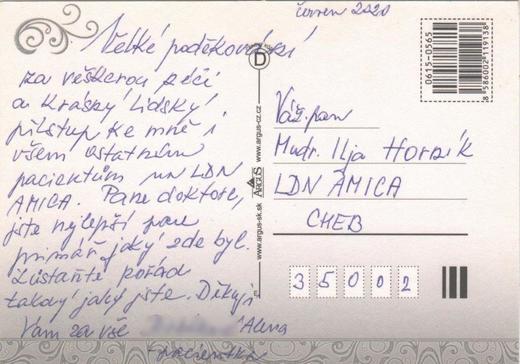 červen 2020
Velké poděkování
za veškerou péči
a krásný lidský
přístup ke mně i
všem ostatním
pacientům na LDN
AMICA. Pane doktore,
jste nejlepší pan
primář jaký zde byl.
Zůstaňte pořád
takový jaký jste. Děkuji
Vám za vše
Alena
pacientka
D
www.argus-cz.cz
ARGUS
www.argus-sk.sk
0615-0565
8 586002 919138
Váž. pan
Mudr. Ilja Horník
LDN AMICA
CHEB
35002